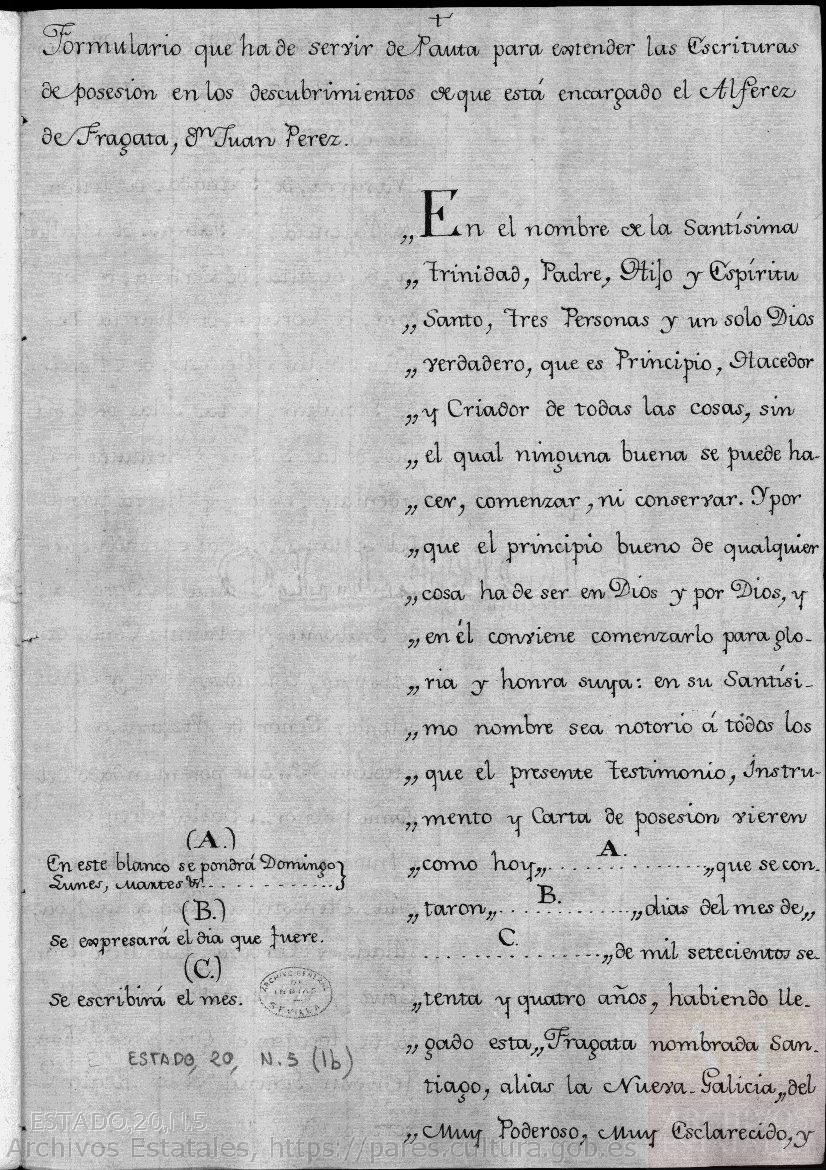 +
Formulario que ha de servir de Pauta para extender las Escrituras
de posesion en los descubrimientos de que está encargado el Alferez
de Fragata, Dn Juan Perez.
„En el nombre de la Santísima
„Trinidad, Padre, Hijo y Espíritu
„Santo, tres Personas y un solo Dios
„verdadero, que es Principio, Hacedor
„y Criador de todas las cosas, sin
„el qual ninguna buena se puede ha-
„cer, comenzar, ni conservar. Y por
„que el principio bueno de qualquier
„cosa ha de ser en Dios y por Dios, y
„en él conviene comenzarlo para glo-
„ria y honra suya: en su Santísi-
„mo nombre sea notorio á todos los
„que el presente testimonio, Instru-
„mento y Carta de posesion vieren
„como hoy„ . . . . . A. . . . . . „que se con-
„taron„ . . . . B. . . . . . „dias del mes de„
. . . . . . C. . . . . . . „de mil setecientos se-
„tenta y quatro años, habiendo lle-
„gado esta„Fragata nombrada San-
tiago, alias la Nueva-Galicia„del
„Muy Poderoso, Muy Esclarecido, y
(A.)
En este blanco se pondrá Domingo
Lunes, Martes &. . . . . . . . . . . . }
(B.)
Se expresará el dia que fuere.
(C.)
Se escribirá el mes.
ARCHIVO GENERAL
DE
INDIAS
SEVILLA
ESTADO, 20, N.5 (1b)
ESTADO,20,N.5
Archivos Estatales, https://pares.cultura.gob.es